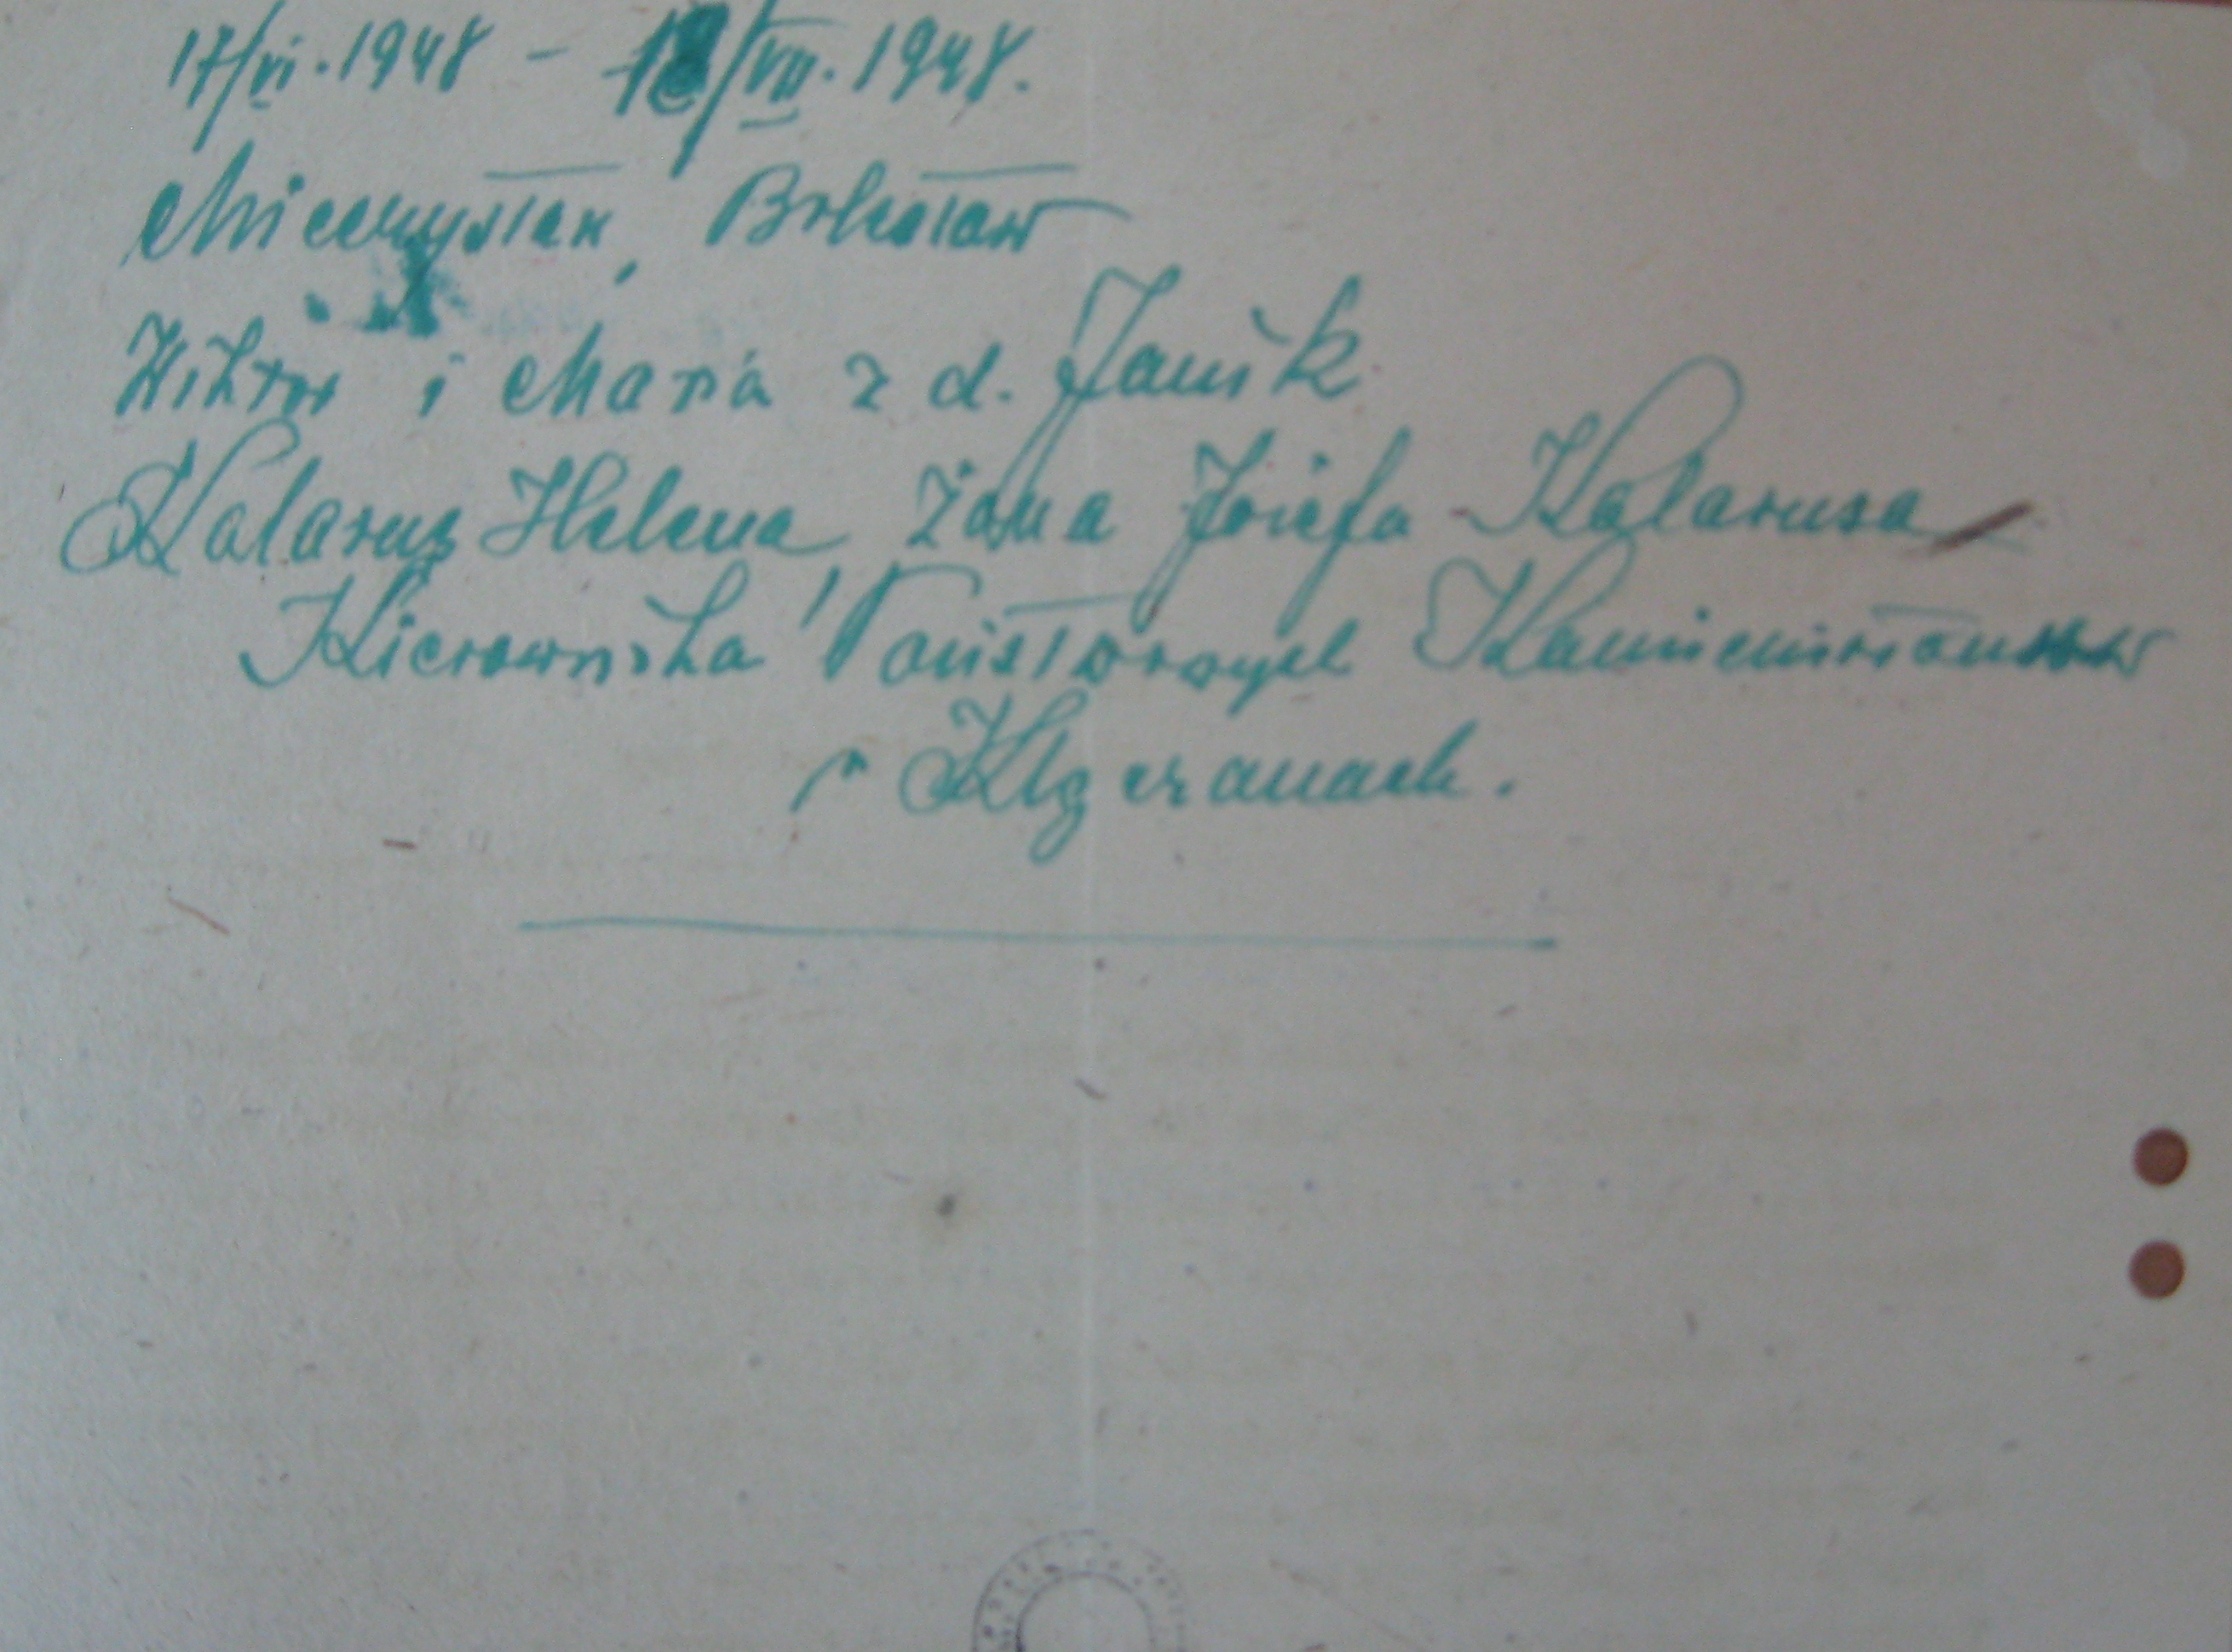 17/VI. 1948 – 18/VII. 1948.
Mieczysław, Bolesław
Wiktor i Maria z d. Janik
Kalarus Helena, żona Józefa Kalarusa
Kierownika Państwowych Kamieniołomów
w Klęczanach.